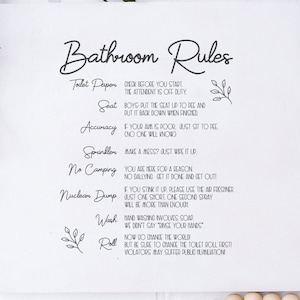 Bathroom Rules
Toilet Paper CHECK BEFORE YOU START.
THE ATTENDENT IS OFF DUTY.
Seat BOYS: PUT THE SEAT UP TO PEE AND
PUT IT BACK DOWN WHEN FINISHED.
Accuracy IF YOUR AIM IS POOR, JUST SIT TO PEE.
(NO ONE WILL KNOW)
Sprinklers MAKE A MESS? JUST WIPE IT UP.
No Camping YOU ARE HERE FOR A REASON.
NO DALLYING. GET IT DONE AND GET OUT!
Nuclear Dump IF YOU STINK IT UP, PLEASE USE THE AIR FRESHENER.
JUST ONE SHORT, ONE SECOND SPRAY
WILL BE MORE THAN ENOUGH.
Wash HAND WASHING INVOLVES SOAP.
WE DIDN'T SAY "RINSE YOUR HANDS".
Roll NOW GO CHANGE THE WORLD!
BUT BE SURE TO CHANGE THE TOILET ROLL FIRST!
VIOLATORS MAY SUFFER PUBLIC HUMILIATION!